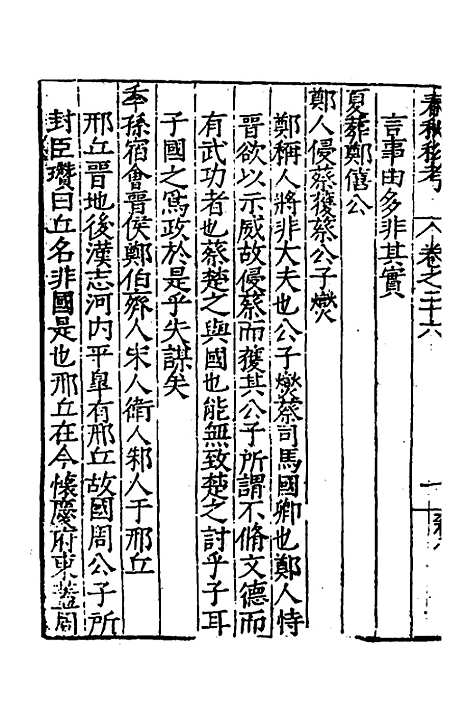 春秋私考 卷之二十六
言事由多非其實
夏葬鄭僖公
鄭人侵蔡獲蔡公子燮
鄭稱人將非大夫也公子燮蔡司馬國卿也鄭人恃
晉欲以示威故侵蔡而獲其公子所謂不脩文德而
有武功者也蔡楚之與國也能無致楚之討乎子耳
子國之爲政於是乎失謀矣
季孫宿會晉侯鄭伯齊人宋人衛人邾人于邢丘
邢丘晉地後漢志河内平臯有邢丘故國周公子所
封臣瓚曰丘名非國是也邢丘在今懷慶府東蓋周